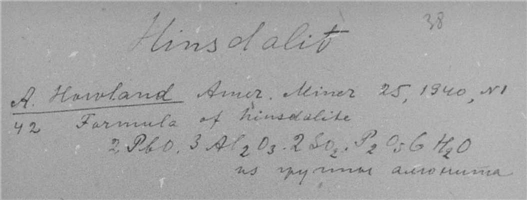 38
Hinsdalit
A. Howland Amer. Miner 25, 1940, N1
42 Formula of hinsdalite
2 PbO. 3 Al2O3. 2 SO2. P2O5 6 H2O
из группы алюнита